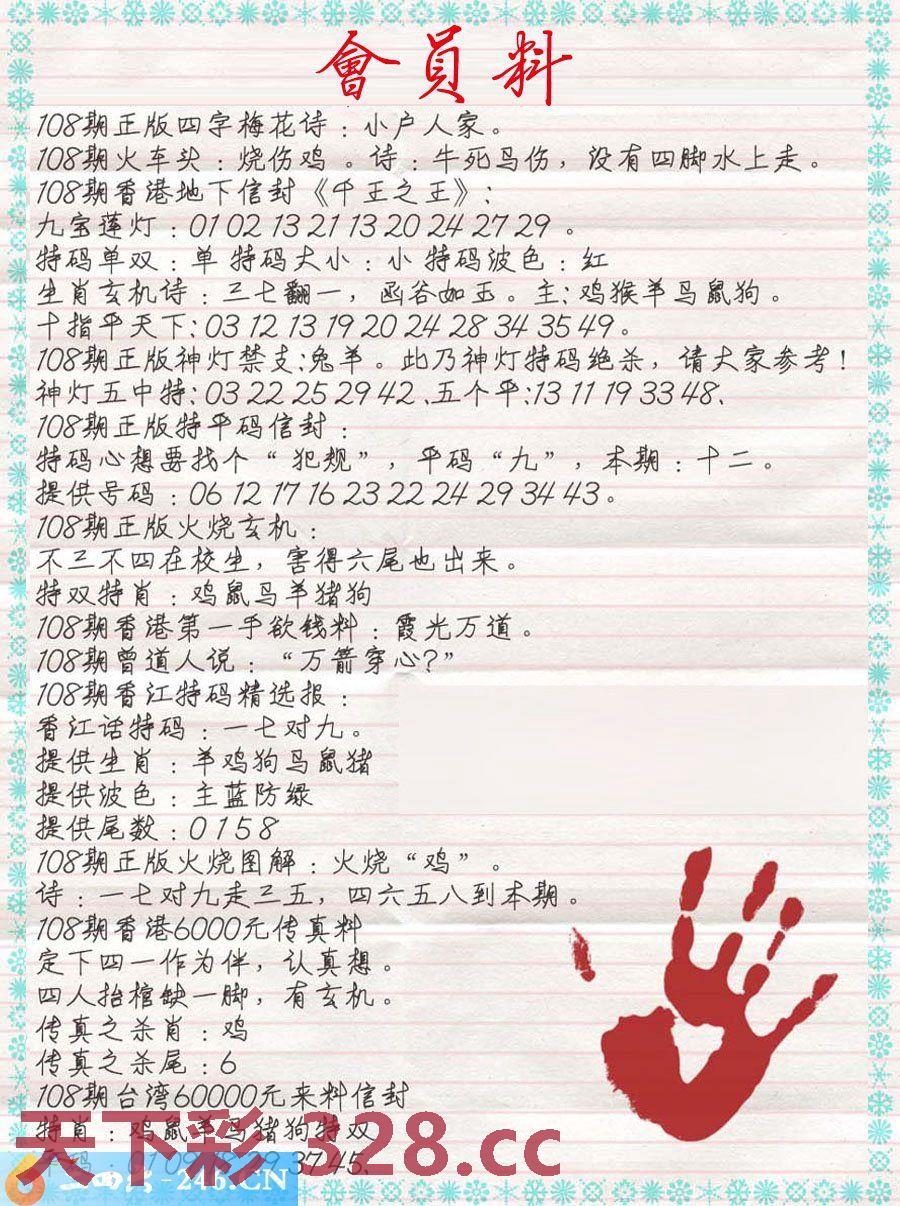 會員料
108期正版四字梅花诗：小户人家。
108期火车头：烧伤鸡 。诗：牛死马伤，没有四脚水上走。
108期香港地下信封《千王之王》：
九宝莲灯：01 02 13 21 13 20 24 27 29 。
特码单双：单 特码大小：小 特码波色：红
生肖玄机诗：三七翻一，函谷如玉。主：鸡猴羊马鼠狗。
十指平天下：03 12 13 19 20 24 28 34 35 49。
108期正版神灯禁支：兔羊。此乃神灯特码绝杀，请大家参考！
神灯五中特：03 22 25 29 42 、五个平：13 11 19 33 48、
108期正版特平码信封：
特码心想要找个“ 犯规”，平码“九”，本期：十二。
提供号码：06 12 17 16 23 22 24 29 34 43。
108期正版火烧玄机：
不三不四在校生，害得六尾也出来。
特双特肖：鸡鼠马羊猪狗
108期香港第一手欲钱料：霞光万道。
108期曾道人说：“万箭穿心？”
108期香江特码精选报：
香江话特码：一七对九。
提供生肖：羊鸡狗马鼠猪
提供波色：主蓝防绿
提供尾数：0 1 5 8
108期正版火烧图解：火烧“鸡”。
诗：一七对九走三五，四六五八到本期。
108期香港6000元传真料
定下四一作为伴，认真想。
四人抬棺缺一脚，有玄机。
传真之杀肖：鸡
传真之杀尾：6
108期台湾60000元来料信封
特肖：鸡鼠羊马猪狗特双
37 45、
天下彩 328.cc
二四六-246.CN